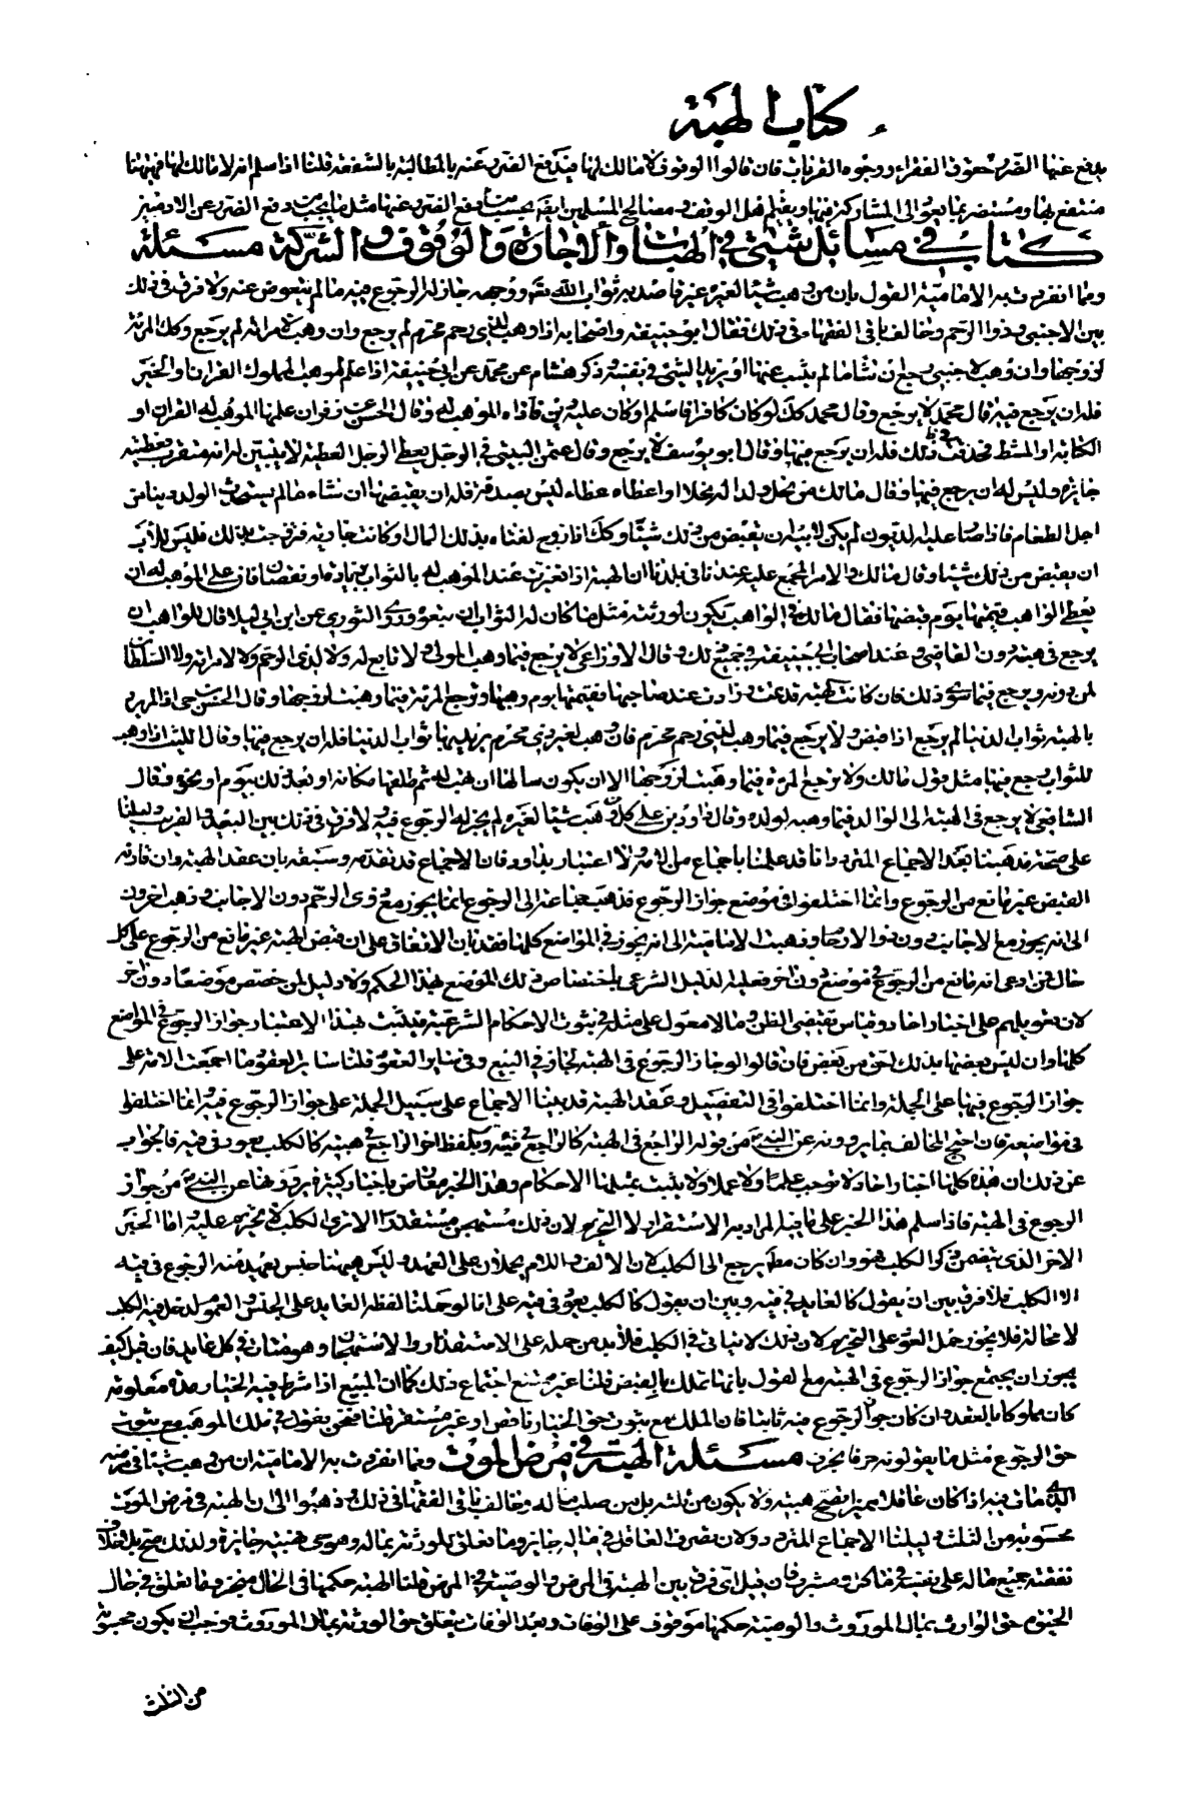 كتاب الهبة
يدفع عنها الضرر حقوق الفقراء ووجوه القربات فان قالوا الوقوف لا مالك لها فيدفع الضرر عنه بالمطالبة بالشفعة قلنا اذا سلم انه لا مالك لها فههنا
منتفع بها ومستضر بما يعود الى المشاركة فيها وبعد فاهل الوقف ومصالح المسلمين يجب دفع الضرر عنها مثل ما يجب دفع الضرر عن الادميين
كتاب في مسائل شتى في الهبات والاجارة والوقوف والشركة مسئلة
ومما انفردت به الامامية القول بان من وهب شيئا لغيره غير قاصد به ثواب الله تعالى ووجهه جاز له الرجوع فيه ما لم يتعوض عنه ولا فرق في ذلك
بين الاجنبي وذوا الرحم وخالف باقي الفقهاء في ذلك فقال ابو حنيفة واصحابه اذا وهب لذي رحم محرم لم يرجع وان وهبت امراته لم يرجع وكك المرئة
لزوجها وان وهب لاجنبي رجع ان شاء ما لم يثب عنها او يزيد الشيء في نفسه وذكر هشام عن محمد عن ابي حنيفة اذا علم الموهوب المملوك القران والخبر
فله ان يرجع فيه قال محمد لا يرجع وقال محمد كك لو كان كافرا فاسلم او كان عليه دين فاداه الموهوب له وقال الحسن بن زفر ان علمها الموهوب له القران او
الكتابة او المشط فحذقت ذلك فله ان يرجع فيها وقال ابو يوسف لا يرجع وقال عثمن البتي في الرجل يعطي الرجل العطية لا يتبين له انه
جايزة وليس له ان يرجع فيها وقال مالك من نحل ولدا له نحلا او اعطاه عطاء ليس بصدقة فله ان يقبضها ان شاء ما لم يستحدث الولد دينا من
اجل الطعام فاذا صار عليه الديون لم يكن لابيه ان يقبض من ذلك شيئا وكك اذا زوج الفتاة بذلك المال او كانت جارية فتزوجت بذلك فليس للاب
ان يقبض من ذلك شيئا وقال مالك والامر المجمع عليه عندنا في بلدنا ان الهبة اذا تغيرت عند الموهوب له بالثواب بزيادة او نقصان فان على الموهوب له ان
يعطي الواهب قيمتها يوم قبضها فقال مالك في الواهب يكون لورثته مثل ما كان له الثواب ان يتبعوه وروى الثوري عن ابن ابي ليلى قال للواهب ان
يرجع في هبته دون القاضي وعند اصحاب ابي حنيفة وجميع ذلك وقال الاوزاعي لا يرجع فيما وهب لمولى ولا تابع له ولا لذي الرحم ولا لامراته ولا السلطان
لمن دونه ويرجع فيما سوى ذلك فان كانت الهبة قد نمت وزادت عند صاحبها فقيمتها يوم وهبها وترجع المرئة فيما وهبت لزوجها وقال الحسن بن حي اذا لم يرد
بالهبة ثواب الدنيا لم يرجع اذا قبض ولا يرجع فيما وهب لذي رحم محرم فان وهب لغير ذي محرم يريد بها ثواب الدنيا فله ان يرجع فيها وقال الليث اذا وهب
للثواب رجع فيها مثل قول مالك ولا ترجع المرئة فيما وهبت لزوجها الا ان يكون سالها ان تهب له ثم طلقها مكانه او بعد ذلك بيوم او نحوه وقال
الشافعي لا يرجع في الهبة الا الوالد فيما وهبه لولده وقال داود بن علي كل من وهب شيئا لغيره لم يجز له الرجوع فيه لا فرق في ذلك بين البعيد والقريب دليلنا
على صحة مذهبنا بعد الاجماع المتردد انا قد علمنا باجماع من الامة لا اعتبار بداود فان الاجماع قد تقدمه وسبقه بان عقد الهبة وان قارنه
القبض غير مانع من الرجوع وانما اختلفوا في موضع جواز الرجوع فذهب جماعة الى الرجوع انما يجوز مع ذوي الرحم دون الاجانب وذهب اخرون
الى انه يجوز مع الاجانب دون ذوا الارحام وذهبت الامامية الى انه يجوز في المواضع كلها فقد بان الاتفاق على ان قبض الهبة غير مانع من الرجوع على كل
حال فمن ادعى انه مانع من الرجوع في موضع دون اخر فعليه الدليل الشرعي باختصاص ذلك الموضع بهذا الحكم ولا دليل لمن خصص موضعا دون اخر
لان تعويلهم على اخبار احاد وقياس يقتضي الظن وما لا معول على مثله في ثبوت الاحكام الشرعية فيثبت بهذا الاعتبار جواز الرجوع في المواضع
كلها وان ليس بعضها بذلك احق من بعض فان قالوا لو جاز الرجوع في الهبة لجاز في البيع وفي ساير العقود قلنا ساير العقود ما اجمعت الامة على
جواز الرجوع فيها على الجملة وانما اختلفوا في التفصيل وعقد الهبة قد بينا الاجماع على سبيل الجملة على جواز الرجوع فيه انما اختلفوا
في مواضعه فان احتج المخالف بما يروونه عن النبي ص من قوله الراجع في الهبة كالراجع في قيئه وبلفظ اخر الراجع في هبته كالكلب يعود في قيئه فالجواب
عن ذلك ان هذه كلها اخبار احاد لا توجب علما ولا عملا ولا يثبت بمثلها الاحكام وهذا الخبر معارض باخبار كثيرة يروونها عن النبي ص من جواز
الرجوع في الهبة فاذا سلم هذا الخبر على ما فيه المراد به الاستقذار لا التحريم لان ذلك مستهجن مستقذر الا ترى الكلب لا تحريم عليه اما الخبر
الاخر الذي يتضمن ذكر الكلب فهو وان كان مطلقا يرجع الى الكلب لان الالف واللام يحملان على العهد وليس هيهنا جنس يعهد منه الرجوع في قيئه
الا الكلب فلا فرق بين ان يقول كالعايد في قيئه وبين ان يقول كالكلب يعود في قيئه على انا لو حملنا لفظ العايد على الجنس والعموم لدخل فيه الكلب
لا محالة فلا يجوز حمل العود على التحريم لان ذلك لا يتاتى في الكلب فلا بد من حمله على الاستقذار والاستهجان وهو متات في كل عايد فان قيل كيف
يجوز ان يجتمع جواز الرجوع في الهبة مع القول بانها تملك بالقبض قلنا غير ممتنع اجتماع ذلك كما ان المبيع اذا شرط فيه الخيار مدة معلومة
كان مملوكا بالعقد وان كان جواز الرجوع فيه ثابتا فان الملك مع ثبوت حق الخيار ناقص او غير مستقر قلنا فنحن نقول في تملك الموهوب مع ثبوت
حق الرجوع مثل ما يقولونه حرفا بحرف مسئلة الهبة في مرض الموت ومما انفردت به الامامية ان من وهب شيئا في مرضه
الذي مات فيه اذا كان عاقلا مميزا تصح هبته ولا يكون من ثلثه بل من صلب ماله وخالف باقي الفقهاء في ذلك وذهبوا الى ان الهبة في مرض الموت
محسوبة من الثلث دليلنا الاجماع المتردد ولان تصرف العاقل في ماله جايز وما تعلق للورثة بماله وهو حي فهبته جايزة ولذلك صح بلا خلاف
نفقته جميع ماله على نفسه في ماكل ومشرب فان قيل اي فرق بين الهبة في المرض والوصية في المرض قلنا الهبة حكمها في الحال منجز وما تعلق في حال
الحيوة حق الوارث بمال المورث والوصية حكمها موقوف على الوفات وبعد الوفات يتعلق حق الورثة بمال المورث فوجب ان يكون محسوبة
من الثلث